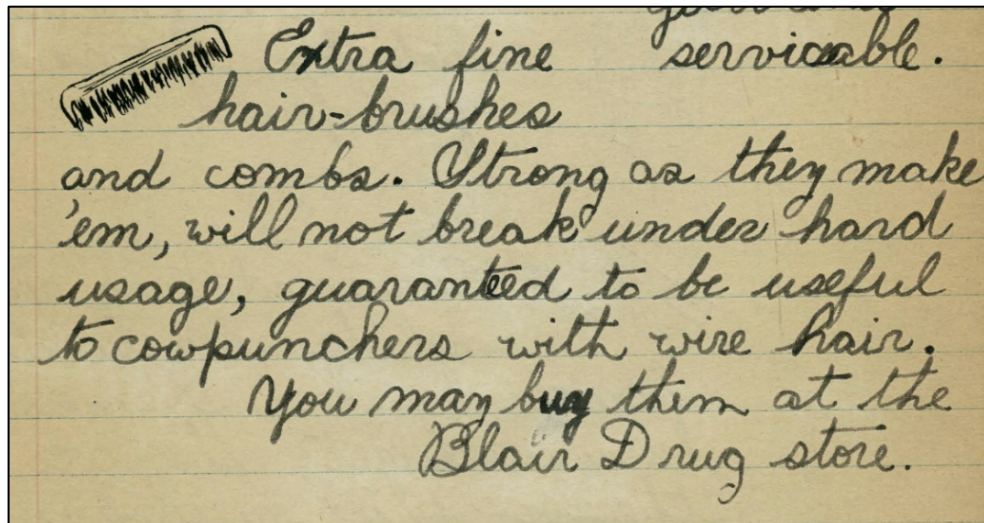 Extra fine servicable.
hair-brushes
and combs. Strong as they make
'em, will not break under hard
usage, guaranteed to be useful
to cowpunchers with wire hair.
You may buy them at the
Blair Drug store.